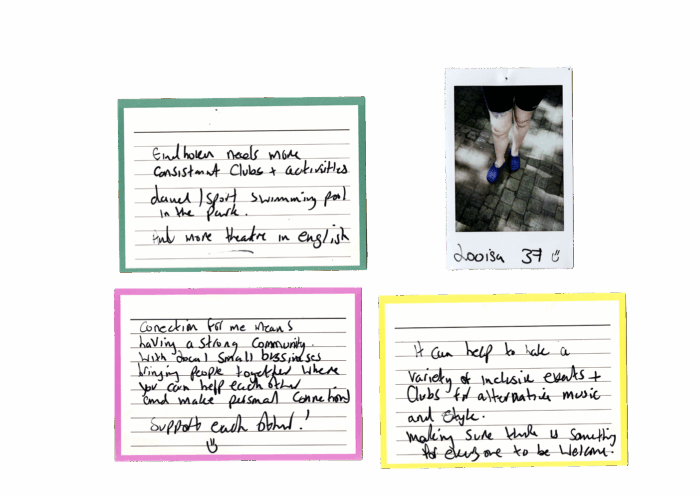 Eindhoven needs more
consistent Clubs + activities
dance / sport swimming pool
in the park.
And more theatre in english
Looisa 37
Conection for me means
having a strong community.
With local small bussinesses
bringing people together where
you can help each other
and make personal connections
Support each other!
It can help to have a
variety of inclusive events +
Clubs for alternative music
and style.
making sure there is something
for everyone to be welcome.